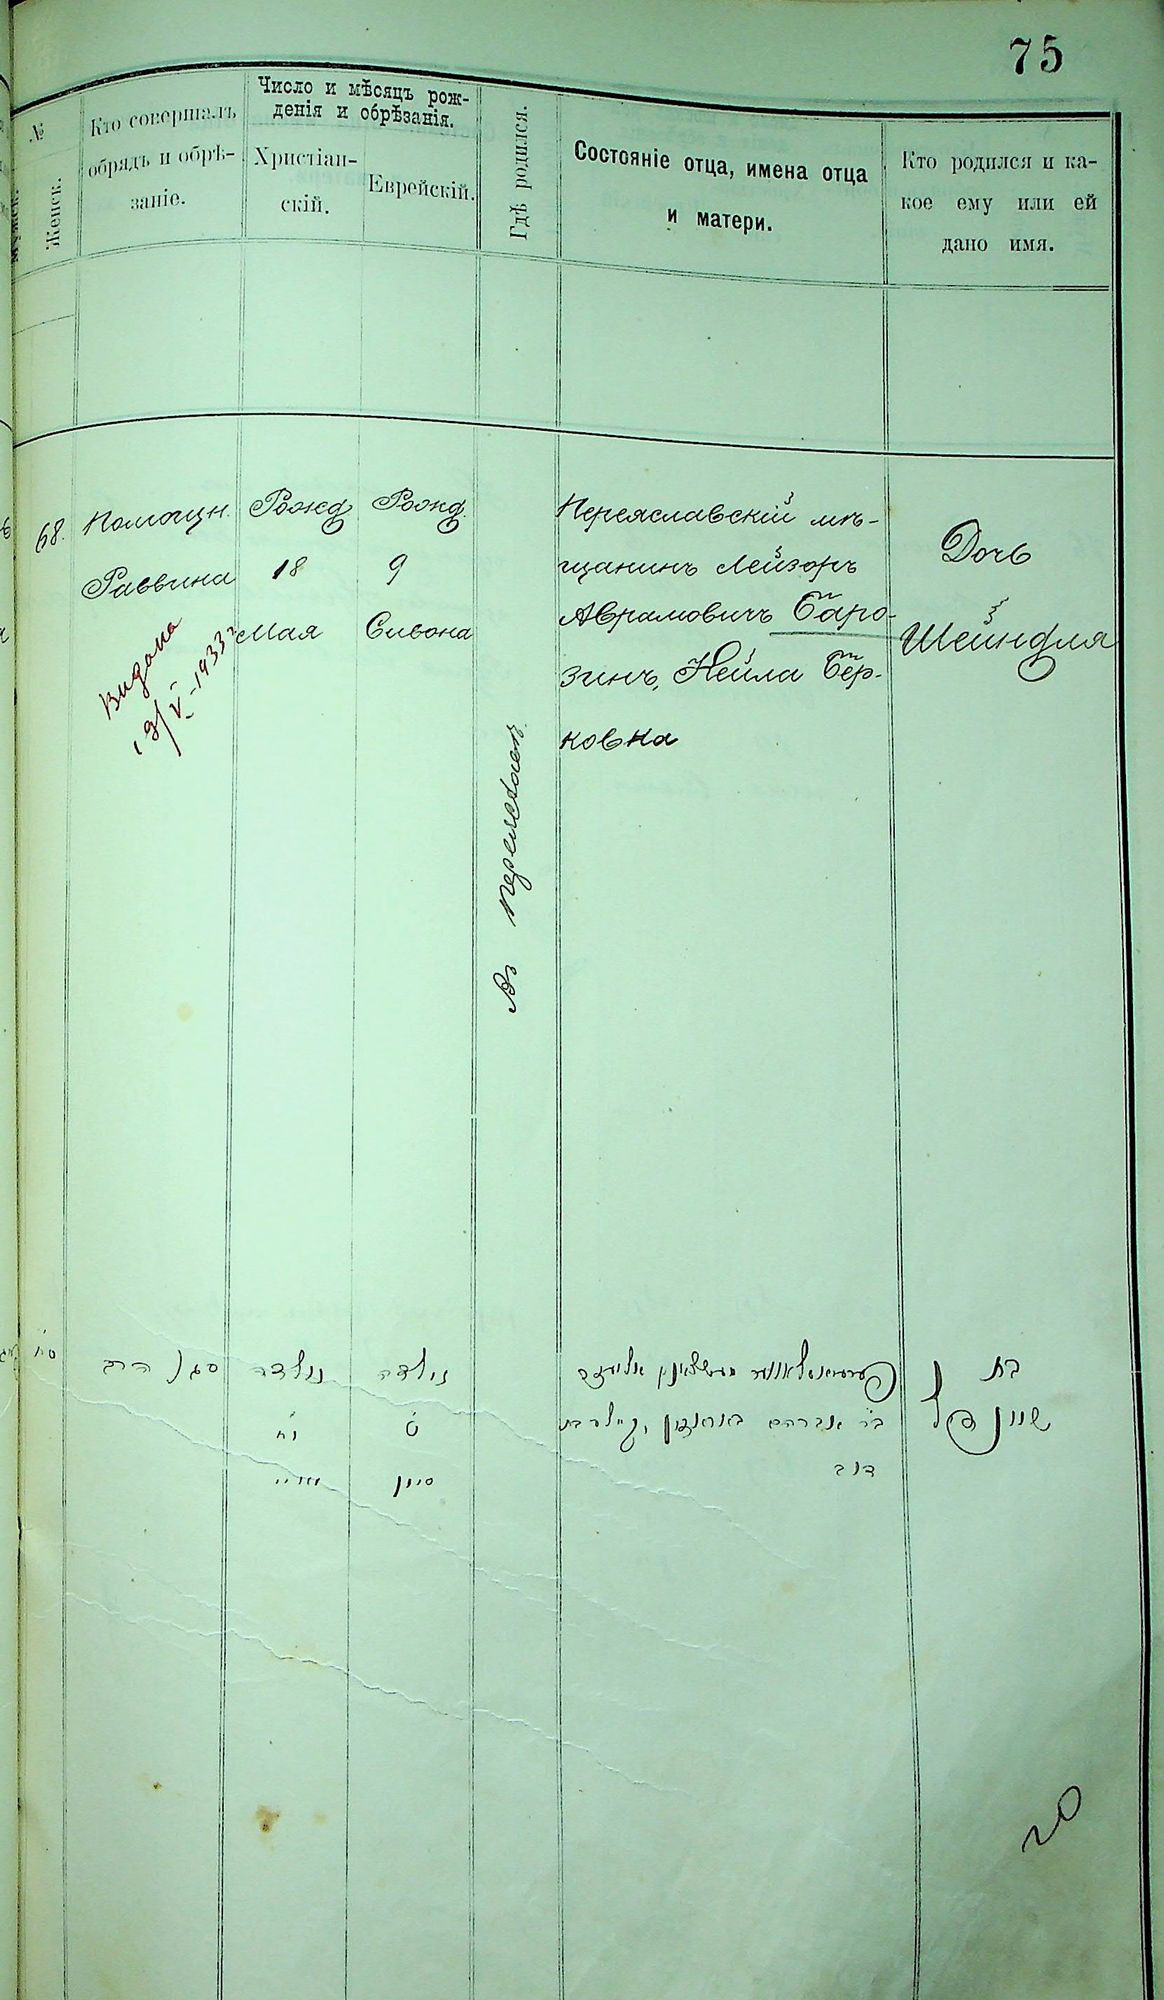 75
№
Мужск.
Женск.
Кто совершалъ
обрядъ и обрѣ-
заніе.
Число и мѣсяцъ рож-
денія и обрѣзанія.
Христіан-
скій.
Еврейскій.
Гдѣ родился.
Состояніе отца, имена отца
и матери.
Кто родился и ка-
кое ему или ей
дано имя.
68.
Помощн.
Раввина
Видана
V-1933 г
Рожд
18
Мая
Рожд.
9
Сивона
Въ Переяславѣ
Переяславскій мѣ-
щанинъ Лейзоръ
Аврамовичъ Баро-
зинъ, Нейла Бер-
ковна
Дочь
Шейндля
סח
סגן הרב
נולדה
יח
מאיי
נולדה
ט
סיון
אליעזר
ב"ר אברהם
דוב
בת
20